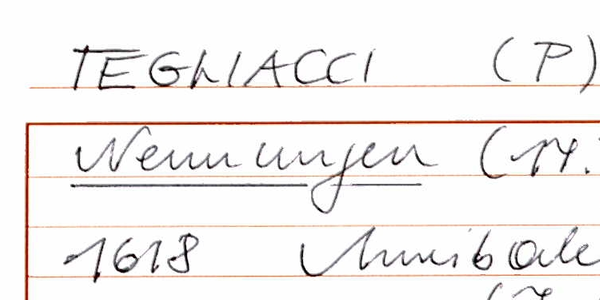 TEGLIACCI (P)
Nennungen (14.
1618 Annibale